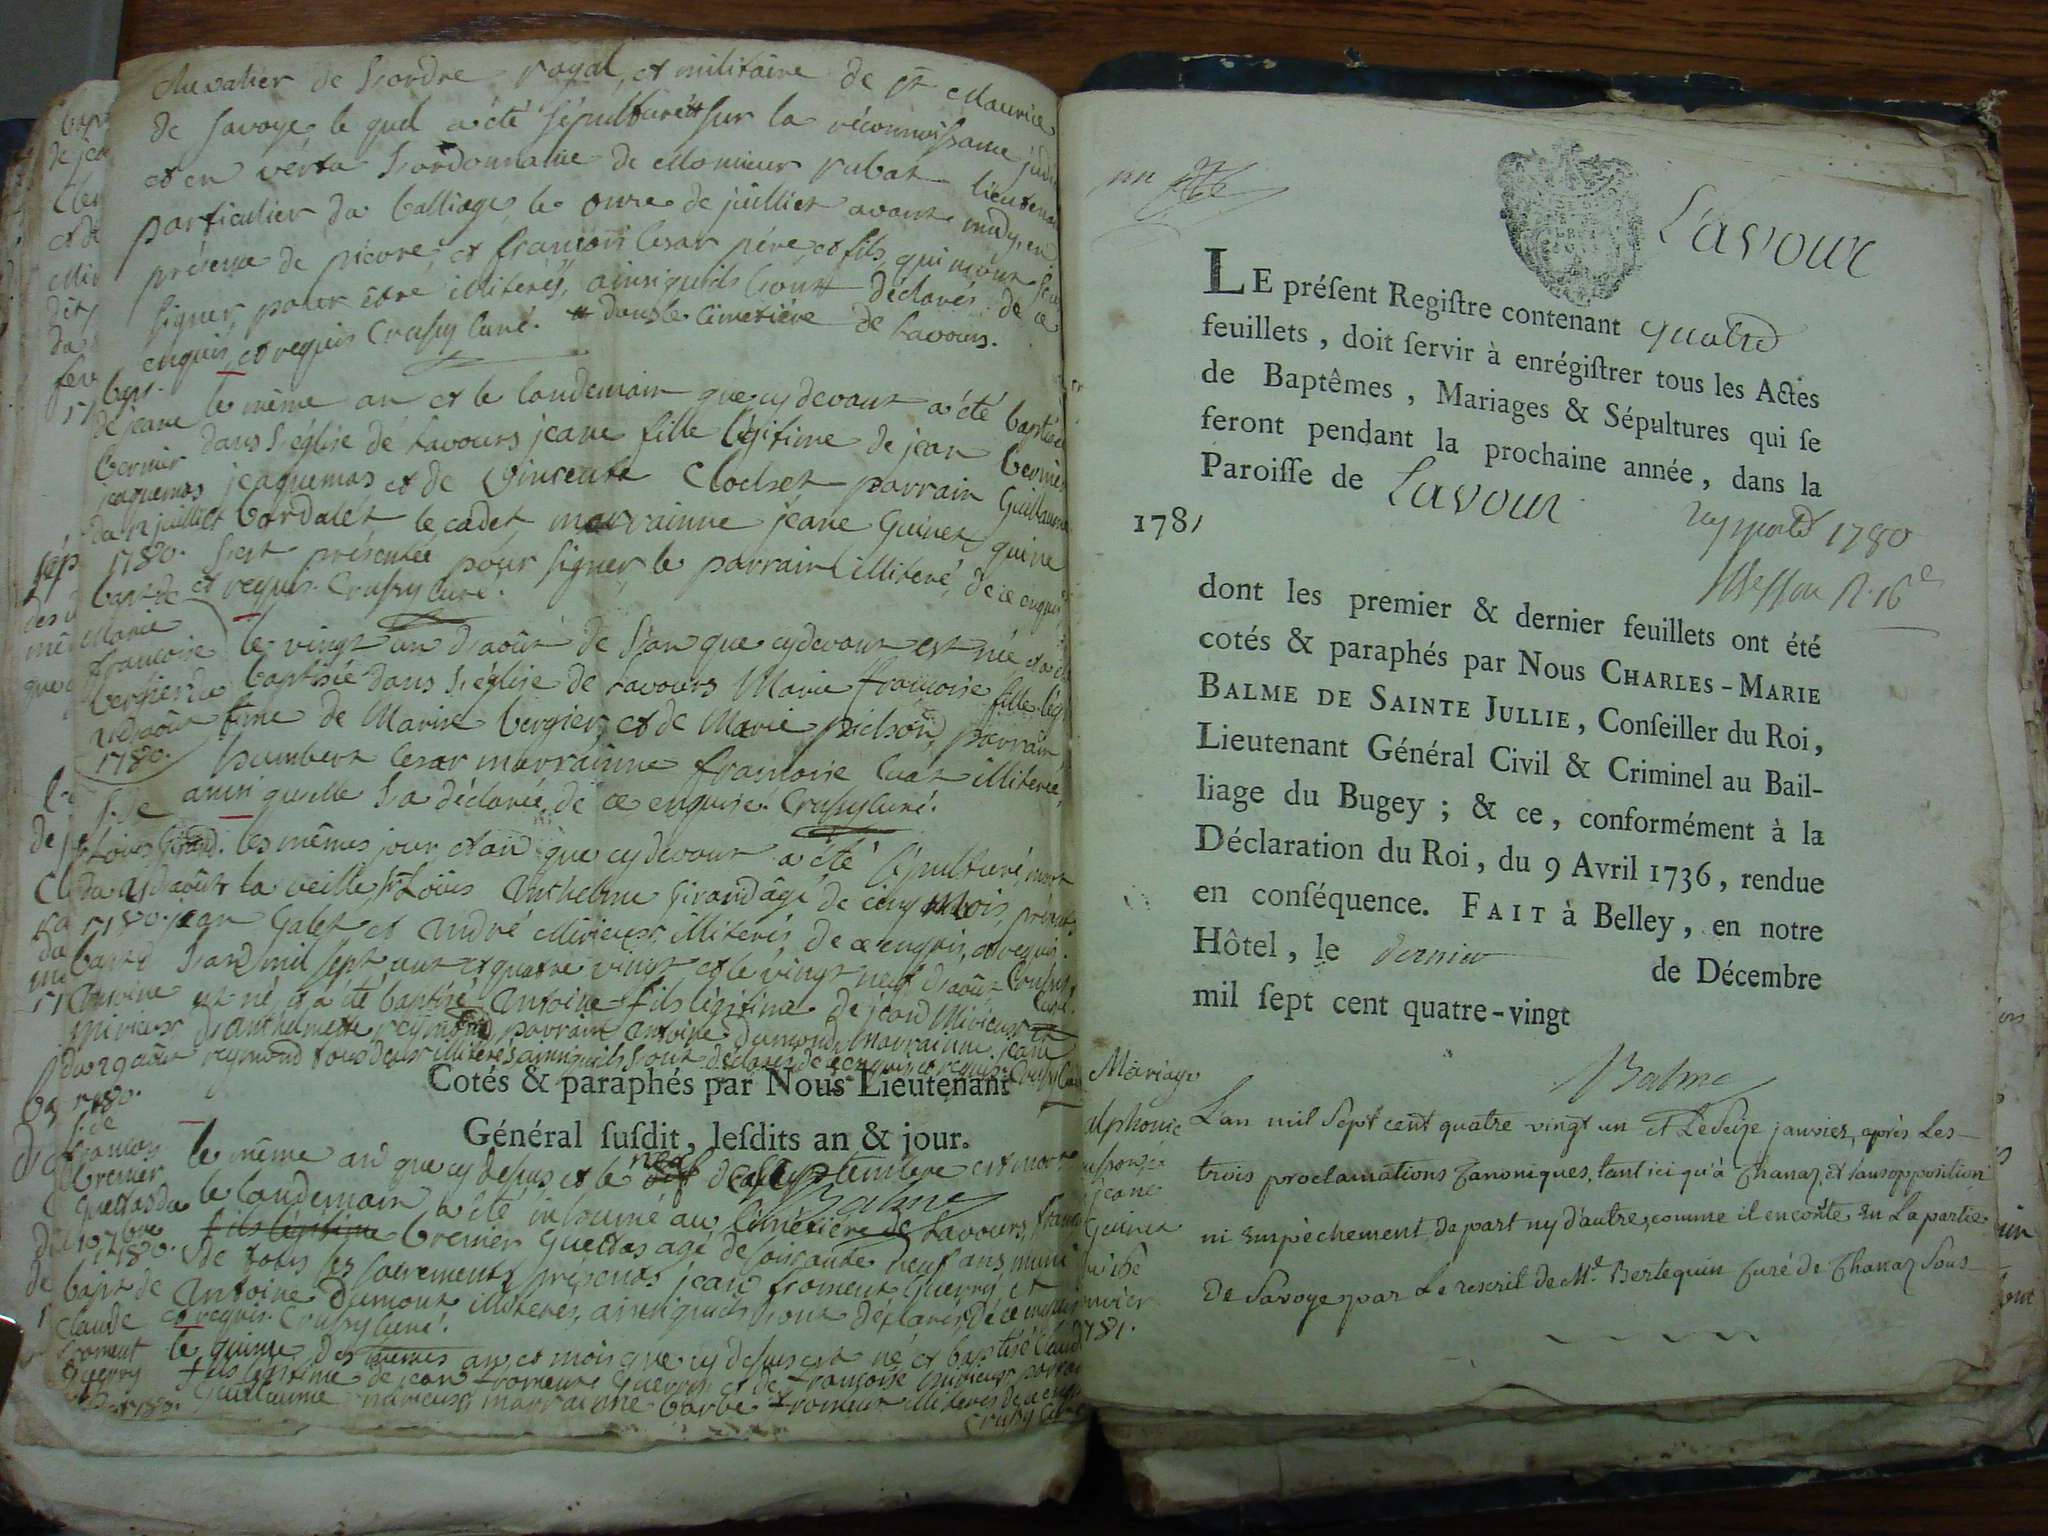 chevalier de L'ordre royal, et militaire de St Maurice
de Savoye, le quel a été sépulturé # sur la réconnoissance
et en vértu L'ordonnance de Monsieur rubat lieutenant
particulier du balliage, le onze de juillier avant midy, en
présence de pierre et françois Cesar père, et fils, qui n'ont
signer pour être illiterés, ainsi qu'ils L'ont déclarés, de ce
enquis, et requis Crussy curé. # dans le cimetiére de Lavours.
bapt. de jeane bernier jeaquemos du 12 juillet 1780.
le même an et le landemain que cy devant a été baptisée
dans L'église de Lavours jeane fille légitime de jean bernier
jeaquemos et de vincente Clochet parrain Guillaume
bordalet le cadet marrainne jeane Guinet qui ne
s'est présentée pour signer le parrain illiteré, de ce enquis
et requis. Crussy curé.
bapt. de Marie françoise bergier du 21 d'août 1780.
le vingt un d'août de L'an que cy devant est née, et a été
baptisée dans L'église de Lavours Marie françoise fille
time de Marin bergier, et de Marie pichod, parrain
humbert Cesar marrainne françoise Cuat illiterée,
ainsi qu'elle L'a déclarée, de ce enquise. Crussy curé.
S. de Loüis Girand. du 21 d'août 1780.
les mêmes jour et an que cy devant a été sépulturé, mort
la veille Loüis Anthelme Girand âgé de cinq mois, présents
jean Galet et André Mirieux, illiterés, de ce enquis, et requis.
bapt. d'Antoine mirieux du 29 août 1780.
L'an mil sept cent et quatre vingt et le vingt neuf d'août Crussy curé.
est né, et a été baptisé Antoine fils légitime de jean Mirieux et
d'anthelmette reymond, parrain Antoine Dumond, marrainne jeane
reymond tous deux illiterés ainsi qu'ils L'ont déclarés de ce enquis et requis. Crussy curé
Cotés & paraphés par Nous Lieutenant
Général susdit, lesdits an & jour.
Balme
S. de françois brenier quettas du 10 7bre 1780.
le même an que cy dessus et le neuf de septembre est mort
le landemain a été inhumé au cimetiére de Lavours,
fils légitime brenier quettas agé de soixante neuf ans muni
de tous les sacrements, présents jean froment Guerry, et
Antoine Dumont illiterés, ainsi qu'ils L'ont déclarés, de ce enquis
et requis. Crussy curé.
bapt. de Claude froment Guerry
le quinze des mêmes an, et mois que cy dessus est né et baptisé Claude
fils légitime de jean froment Guerry et de françoise mirieux parrain
Guillaume mirieux marrainne barbe froment illiterés de ce enquis
Crussy curé
Lavour
LE présent Registre contenant quatre
feuillets, doit servir à enrégistrer tous les Actes
de Baptêmes, Mariages & Sépultures qui se
feront pendant la prochaine année, dans la
Paroisse de Lavour
1781
1780
dont les premier & dernier feuillets ont été
cotés & paraphés par Nous CHARLES-MARIE
BALME DE SAINTE JULLIE, Conseiller du Roi,
Lieutenant Général Civil & Criminel au Bail-
liage du Bugey ; & ce, conformément à la
Déclaration du Roi, du 9 Avril 1736, rendue
en conséquence. FAIT à Belley, en notre
Hôtel, le dernier de Décembre
mil sept cent quatre-vingt
Balme
Mariage
alphonse
jeane
Guinet
janvier
1781.
L'an mil Sept cent quatre vingt un et Le Seize janvier, après Les
trois proclamations Canoniques, tant ici qu'à Chanaz, et sans opposition
ni empêchement da part ny d'autre, comme il en conte en La partie
de Savoye par Le rescrit de Mr. Berlequin Curé de Chanaz Sous-